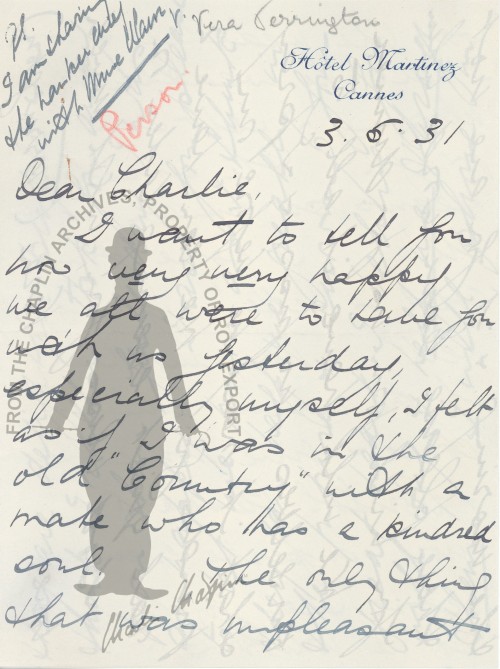 P.S.
I am sharing
the hanker chief
with Mme
v. Vera Perrington
Person.
Hôtel Martinez
Cannes
3.6.31
Dear Charlie,
I want to tell you
how very very happy
we all were to have you
with us yesterday,
especially myself, I felt
as if I was in the
old "Country" with a
mate who has a kindred
soul. The only thing
that was unpleasant
FROM THE CHAPLIN ARCHIVES, PROPERTY OF ROY EXPORT
Charlie Chaplin